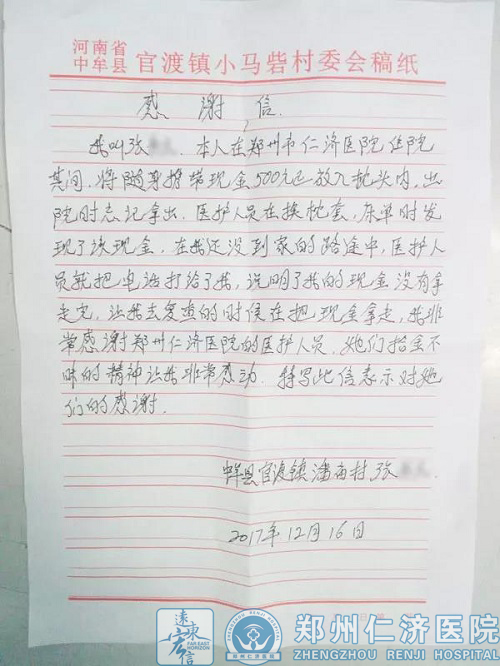 河南省
中牟县 官渡镇小马砦村委会稿纸
感谢信.
我叫张 . 本人在郑州市仁济医院住院
其间, 将随身携带现金500元已放入枕头内, 出
院时忘记拿出. 医护人员在换枕套, 床单时发
现了该现金. 在我还没到家的路途中, 医护人
员就把电话打给了我, 说明了我的现金没有拿
走完, 让我去复查的时候在把现金拿走, 我非
常感谢郑州仁济医院的医护人员. 她们拾金不
昧的精神让我非常感动. 特写此信表示对她
们的感谢.
中牟县官渡镇潘庙村, 张
2017年12月16日
遠東宏信
FAR EAST HORIZON
郑州仁济医院
ZHENGZHOU RENJI HOSPITAL